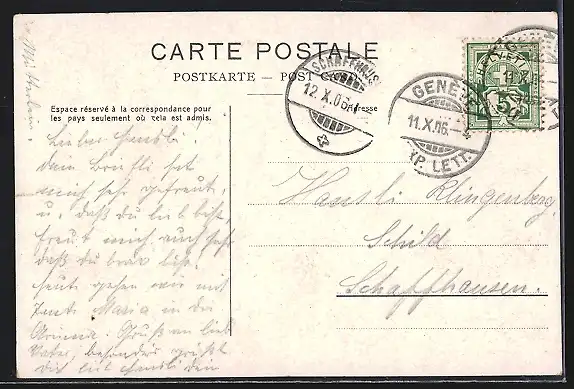 CARTE POSTALE
POSTKARTE — POST
Adresse
Espace réservé à la correspondance pour
les pays seulement où cela est admis.
SCHAFFHAUS
12.X.06
GENÈVE
11.X.06.—4
XP. LETT.
HELVETIA
5
11.X.0
Lieber Hansli!
dein Briefli hat
mich sehr gefreut,
u. daß du lieb bist,
freut mich auch sehr
daß du brav
heute gehen wir mit
Tante Maria in die
Gruß an lieb
Vater, besonders grüßt
dich lieb Hansli dein
Hansli Klingenberg,
Schild
Schaffhausen.